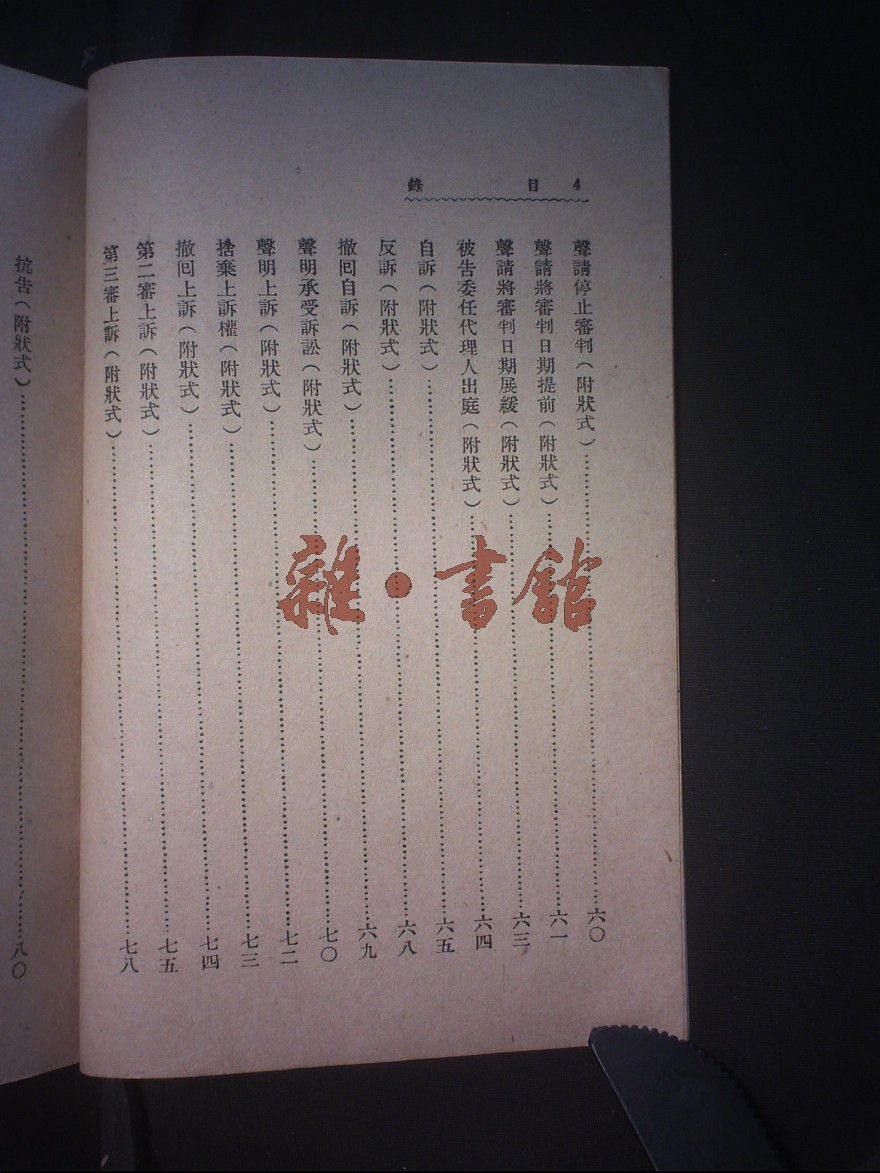 4　目　錄
聲請停止審判（附狀式）……六〇
聲請將審判日期提前（附狀式）……六一
聲請將審判日期展緩（附狀式）……六三
被告委任代理人出庭（附狀式）……六四
自訴（附狀式）……六五
反訴（附狀式）……六八
撤回自訴（附狀式）……六九
聲明承受訴訟（附狀式）……七〇
聲明上訴（附狀式）……七二
捨棄上訴權（附狀式）……七三
撤回上訴（附狀式）……七四
第二審上訴（附狀式）……七五
第三審上訴（附狀式）……七八
抗告（附狀式）……八〇
雜·書館